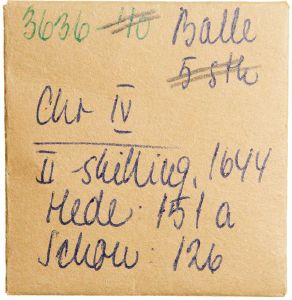 3636 40 Balle
5 stk
Chr IV
II skilling, 1644
Hede: 151 a
Schou: 126